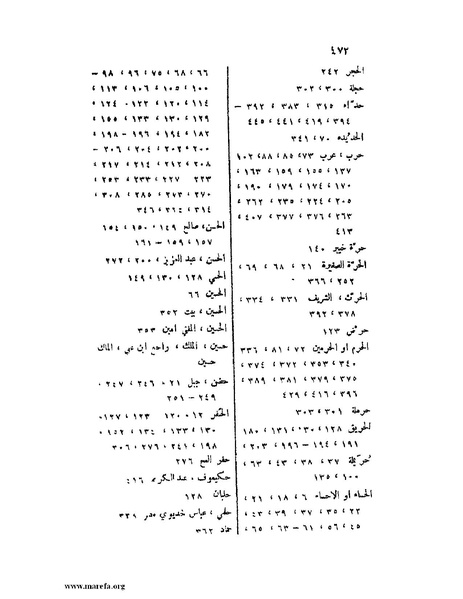 ٤٧٢
الحجر ٢٤٢
حجلة ٣٠٠، ٣٠٢
حدّاء ٣١٥، ٣٨٣، ٣٩٢ –
٣٩٤، ٤١٩، ٤٤١، ٤٤٥
الحديده ٧٠، ٣٤١
حرب، عرب ٧٣، ٨٥، ٨٨، ١٠٢
١٣٧، ١٥٥، ١٥٩، ١٦٣،
١٧٠، ١٧٤، ١٧٩، ١٩٠،
٢٠٥، ٢٢٤، ٢٣٥، ٢٦٢،
٢٦٣، ٣٧٦، ٣٧٧، ٤٠٧،
٤١٣
حرّة خيبر ١٤٠
الحرّة الصغيرة ٢١، ٦٨، ٦٩،
٢٥٢، ٣٦٦
الحرث، الشريف ٣٣١، ٣٣٤،
٣٧٨، ٣٩٢
حرض ١٢٣
الحرم او الحرمين ٧٢، ٨١، ٣٣٦
٣٤٠، ٣٥٣، ٣٧٢، ٣٧٤،
٣٧٥، ٣٧٩، ٣٨١، ٣٨٩،
٣٩٦، ٤١٦، ٤٢٩
حرملة ٣٠١، ٣٠٣
الحريق ١٢٨، ١٣٠، ١٣١، ١٨٠
١٩١، ١٩٤ – ١٩٦، ٢٠٣،
حريملة ٣٧، ٣٨، ٤٣، ٦٣،
١٠٠، ١٣٥
الحساء او الاحساء ٦، ١٨، ٢١،
٢٢، ٣٥، ٣٧، ٣٩، ٤٣،
٤٥، ٥٦، ٦١ – ٦٣، ٦٥،
٦٦، ٦٨، ٧٥، ٩٦، ٩٨ –
١٠٠، ١٠٥، ١٠٦، ١١٣،
١١٤، ١٢٠، ١٢٢، ١٢٤
١٢٩، ١٣٠، ١٣٣، ١٥٥
١٨٢، ١٩٤، ١٩٦ – ١٩٨
٢٠٠، ٢٠٢، ٢٠٤، ٢٠٦ –
٢٠٨، ٢١٢، ٢١٤، ٢١٧،
٢٢٣، ٢٢٧، ٢٣٣، ٢٥٣،
٢٧٠، ٢٧٣، ٢٨٥، ٣٠٨،
٣١٤، ٣٤٦
الحسن، صالح ١٤٩، ١٥٠، ١٥٤
١٥٧، ١٥٩ – ١٦١
الحسن، عبد العزيز، ٢٠٠، ٢٧٢
الحسي ١٢٨، ١٣٠، ١٤٩
الحسين ٦٦
الحسين، بيت ٣٥٢
الحسين، المفتي امين ٣٥٣
حسين، الملك، راجع ابن علي، الملك
حسين
حضن، جبل ٢١، ٢٤٦، ٢٤٧،
٢٤٩ – ٢٥١
الحفر ١٢، ١٢٠، ١٢٣، ١٢٧،
١٣٠، ١٣٣، ١٣٤، ١٥٢،
١٩٨، ٢٤١، ٢٧٦، ٣٠٦
حفر العج ٢٧٦
حكيموف، عبد الكريم
حلبان ١٢٨
حلمي، عباس خديوي مصر
حماد ٣٦٢
www.marefa.org